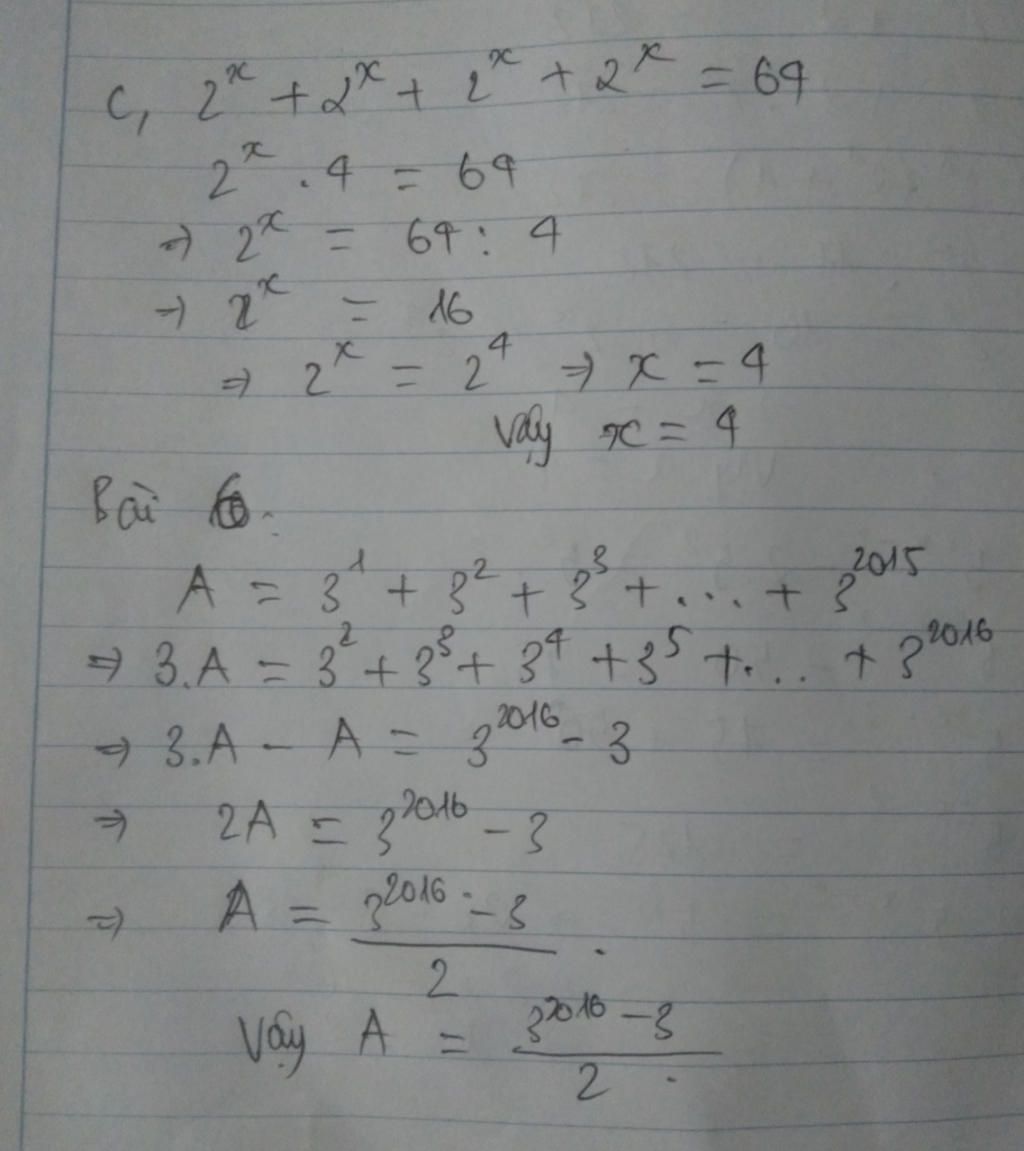 c, 2^x + 2^x + 2^x + 2^x = 64
2^x . 4 = 64
⇒ 2^x = 64 : 4
⇒ 2^x = 16
⇒ 2^x = 2^4 ⇒ x = 4
Vậy x = 4
Bài 6.
A = 3^1 + 3^2 + 3^3 + ... + 3^2015
⇒ 3.A = 3^2 + 3^3 + 3^4 + 3^5 + ... + 3^2016
⇒ 3.A - A = 3^2016 - 3
⇒ 2A = 3^2016 - 3
⇒ A = (3^2016 - 3)/2 .
Vậy A = (3^2016 - 3)/2 .